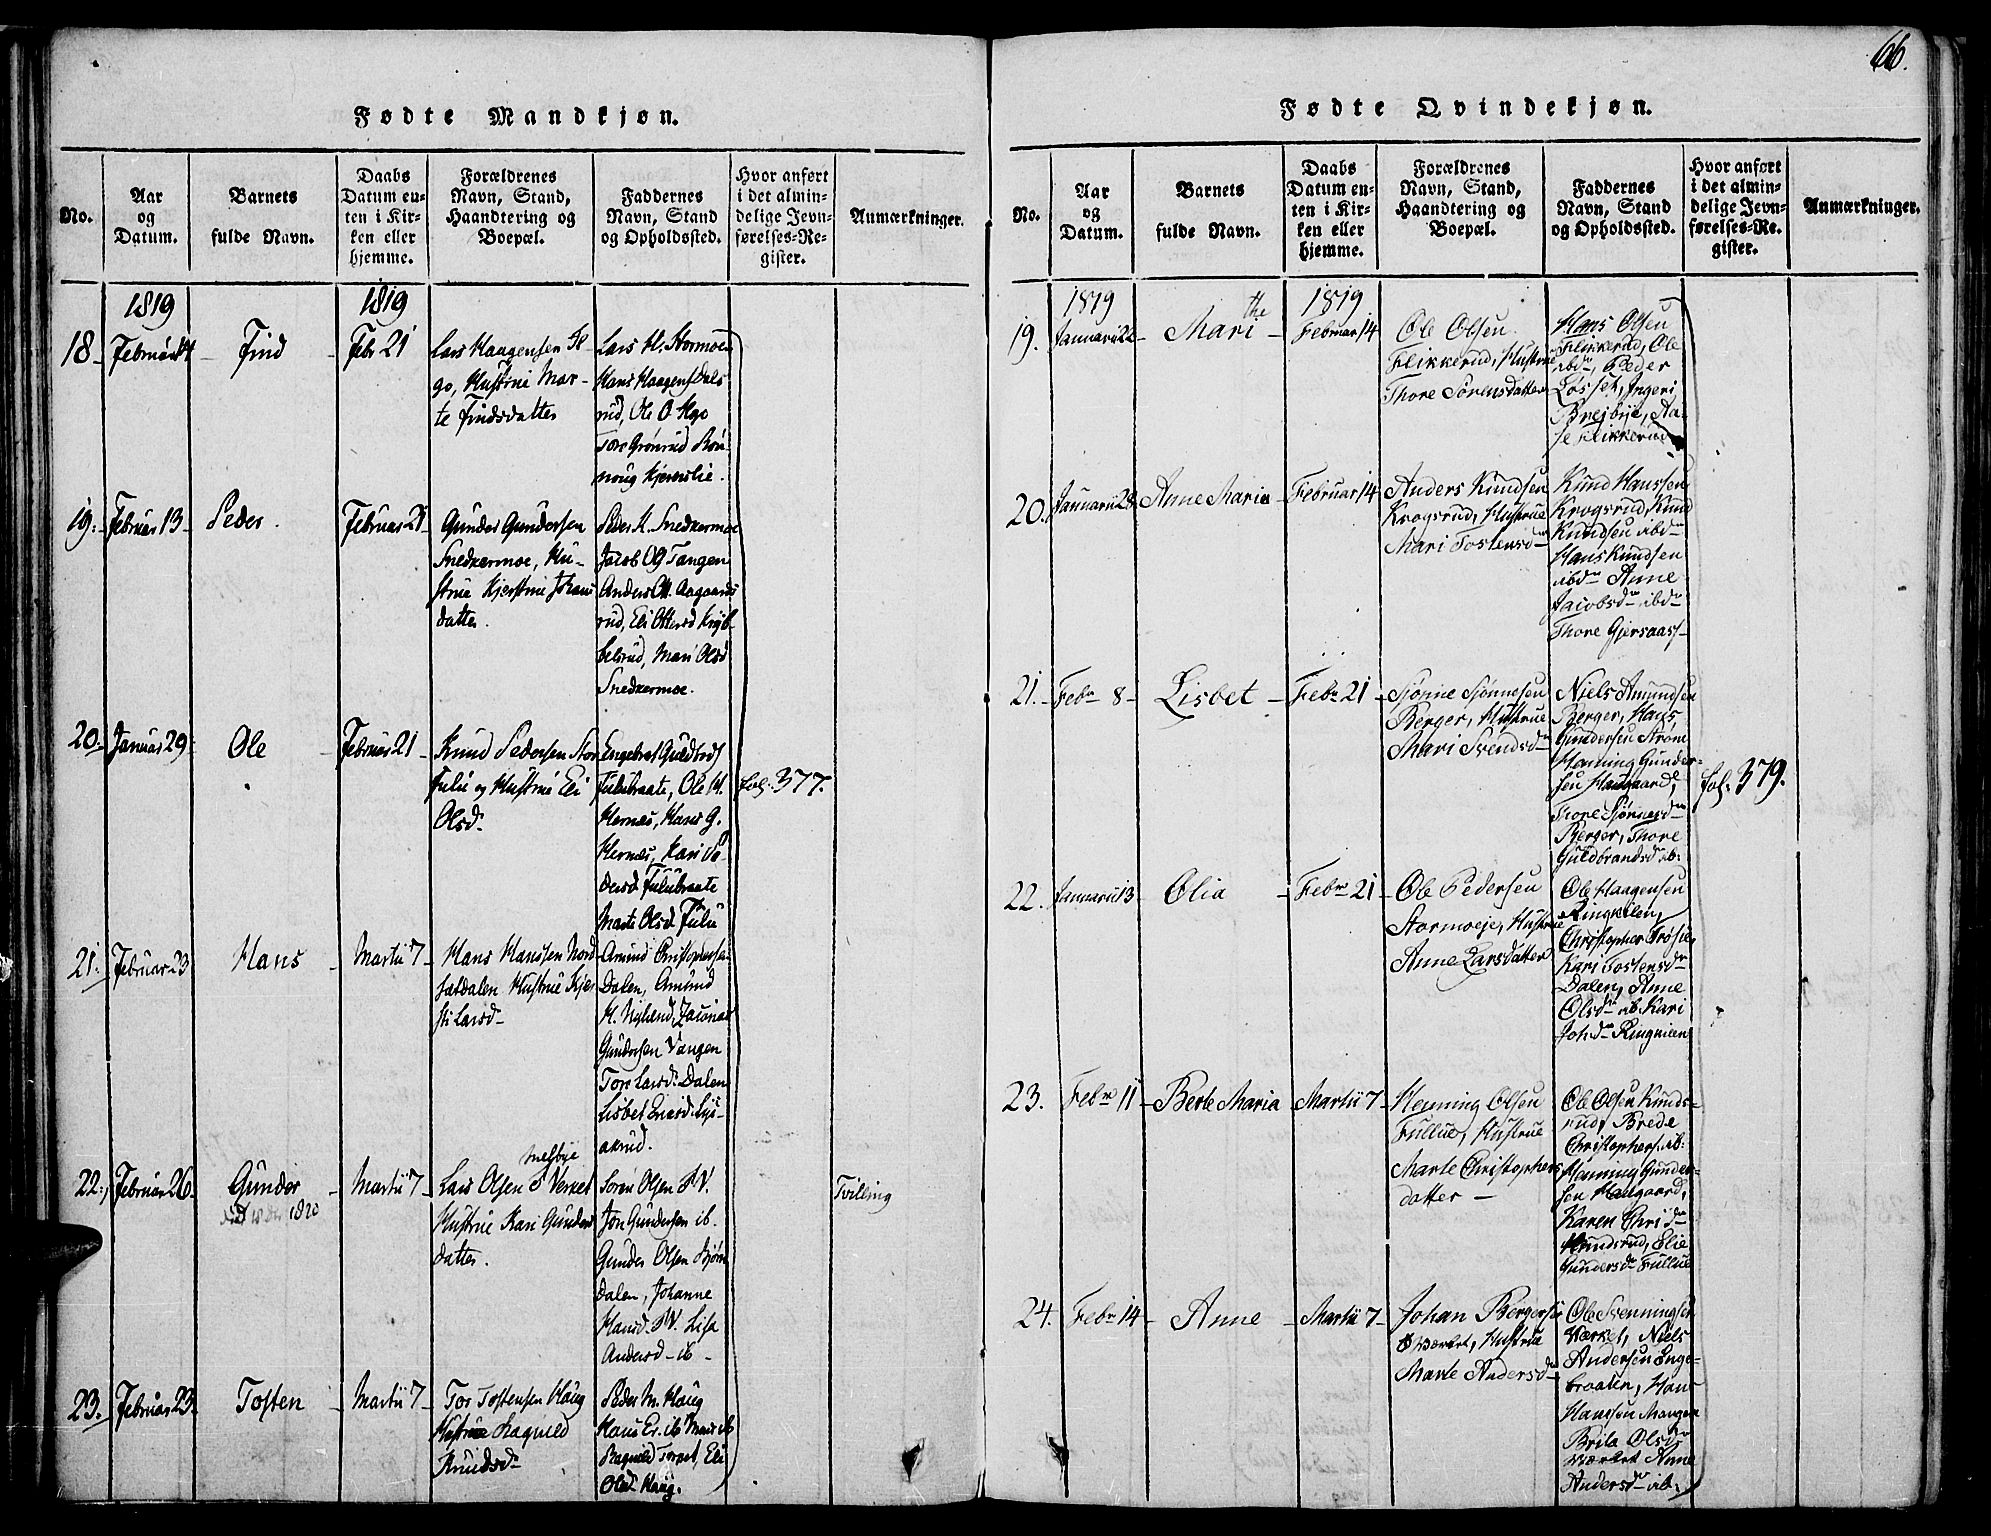 66.
Fødte Mandkjøn.
No.
Aar
og
Datum.
Barnets
fulde Navn.
Daabs
Datum en-
ten i Kir-
ken eller
hjemme.
Forældrenes
Navn, Stand,
Haandtering og
Boepæl.
Faddernes
Navn, Stand
og Opholdssted.
Hvor anført
i det almin-
delige Jevn-
førelses-Re-
gister.
Anmærkninger.
1819
1819
18
Februar 14
Find
Febr 21
Lars Haagensen
Hustrue Mar-
te Findsdatter
Lars H. Stormoen
Hans Haagens
rud, Ole O
Tore Grönrud Rön-
noug Kjernslie.
19.
Februar 13
Peder.
Februar 21
Gunder Gundersen
Snedkermoe, Hu-
strue Kjerstine Johans
datter.
Peder H. Snedkermoe
Jacob O Tangen
Anders Ot. Aagaards
rud, Eli Ottersd
belsrud, Mari Olsd
Snedkermoe.
20
Januar 29
Ole
Februar 21
Knud Pedersen Stor
Fulu og Hustrue Eli
Olsd.
Engebret Guldbrds
Fulubraate, Ole H.
Hernæs, Hans G.
Hernæs, Kari Pe-
dersd Fulubraate
Marte Olsd Fulu
fol: 377.
21.
Februar 23
Hans
Martii 7
Hans Hanssen Nord
setdalen Hustrue Kjer
sti Larsd
Amund Christophersen
Dalen, Amund
H. Nylænd, Zacarias
Gundersen Vangen
Tore Larsd. Dalen
Lisbet
akrud.
22.
Februar 26
Gunder
1820
Martii 7
melbye
Lars Olsen Verket
Hustrue Kari Gunders
datter.
Sören Olsen V.
Jon Gundersen ib.
Gunder Olsen Björn
dalen, Johanne
Hansd. V. Lisa
Andersd ib
Tvilling
23.
Februar 23
Tosten
Martii 7
Tor Tostensen Haug
Hustrue Ragnild
Knudsd
Peder M. Haug
Hans Er. ib Mari ib
Ragnild Torpet, Eli
Olsd Haug.
Fødte Qvindekjøn.
No.
Aar
og
Datum.
Barnets
fulde Navn.
Daabs
Datum en-
ten i Kir-
ken eller
hjemme.
Forældrenes
Navn, Stand,
Haandtering og
Boepæl.
Faddernes
Navn, Stand
og Opholdssted.
Hvor anført
i det almin-
delige Jevn-
førelses-Re-
gister.
Anmærkninger.
1819
1819
19.
Januarii 22
Mari the
Februar 14
Ole Olsen
Flikkerud, Hustrue
Thore Sörensdatter
Hans Olsen
Flikkerud, Ole
ibdm, Peder
Losset, Ingeri
Brejbye, Aa-
se Flikkerud
20.
Januarii 28
Anne Maria
Februar 14
Anders Knudsen
Krogsrud, Hustrue
Mari Tostensdr
Knud Hanssen
Krogsrud, Knud
Knudsen ibdm
Hans Knudsen
ibdm Anne
Jacobsdr ibdm
Thore Gjersaass
21.
Febr 8
Lisbet
Febr 21
Sjönne Sjönnesen
Berger, Hustrue
Mari Svendsdr
Niels Amundsen
Berger, Hans
Gundersen Ström
Henning Gunder-
sen Haugaard,
Thore Sjönnesdr
Berger, Thore
Guldbrandsd ib:
fol: 379.
22.
Januarii 13
Olia
Febr 21
Ole Pedersen
Stormoeje, Hustrue
Anne Larsdatter
Ole Haagensen
Ringvilen,
Christopher Fröse
Kari Tostensdr
Dalen, Anne
Olsdr ib. Kari
Johdr Ringvilen
23.
Febr 11
Berte Maria
Martii 7
Henning Olsen
Fullue, Hustrue
Marte Christophers
datter
Ole Olsen Knuds-
rud, Brede
Christophers. ib:
Henning Gunder-
sen Haugaard,
Karen Chridr
Knudsrud, Elie
Gundersdr Fullue
24.
Febr 14
Anne
Martii 7
Johan Bergersen
Værket, Hustrue
Marte Andersdr
Ole Svenningsen
Værket, Niels
Andersen Enge-
braaten, Hans
Hanssen Mangen
Brita Olsdr
Værket Anne
Andersdr ib: